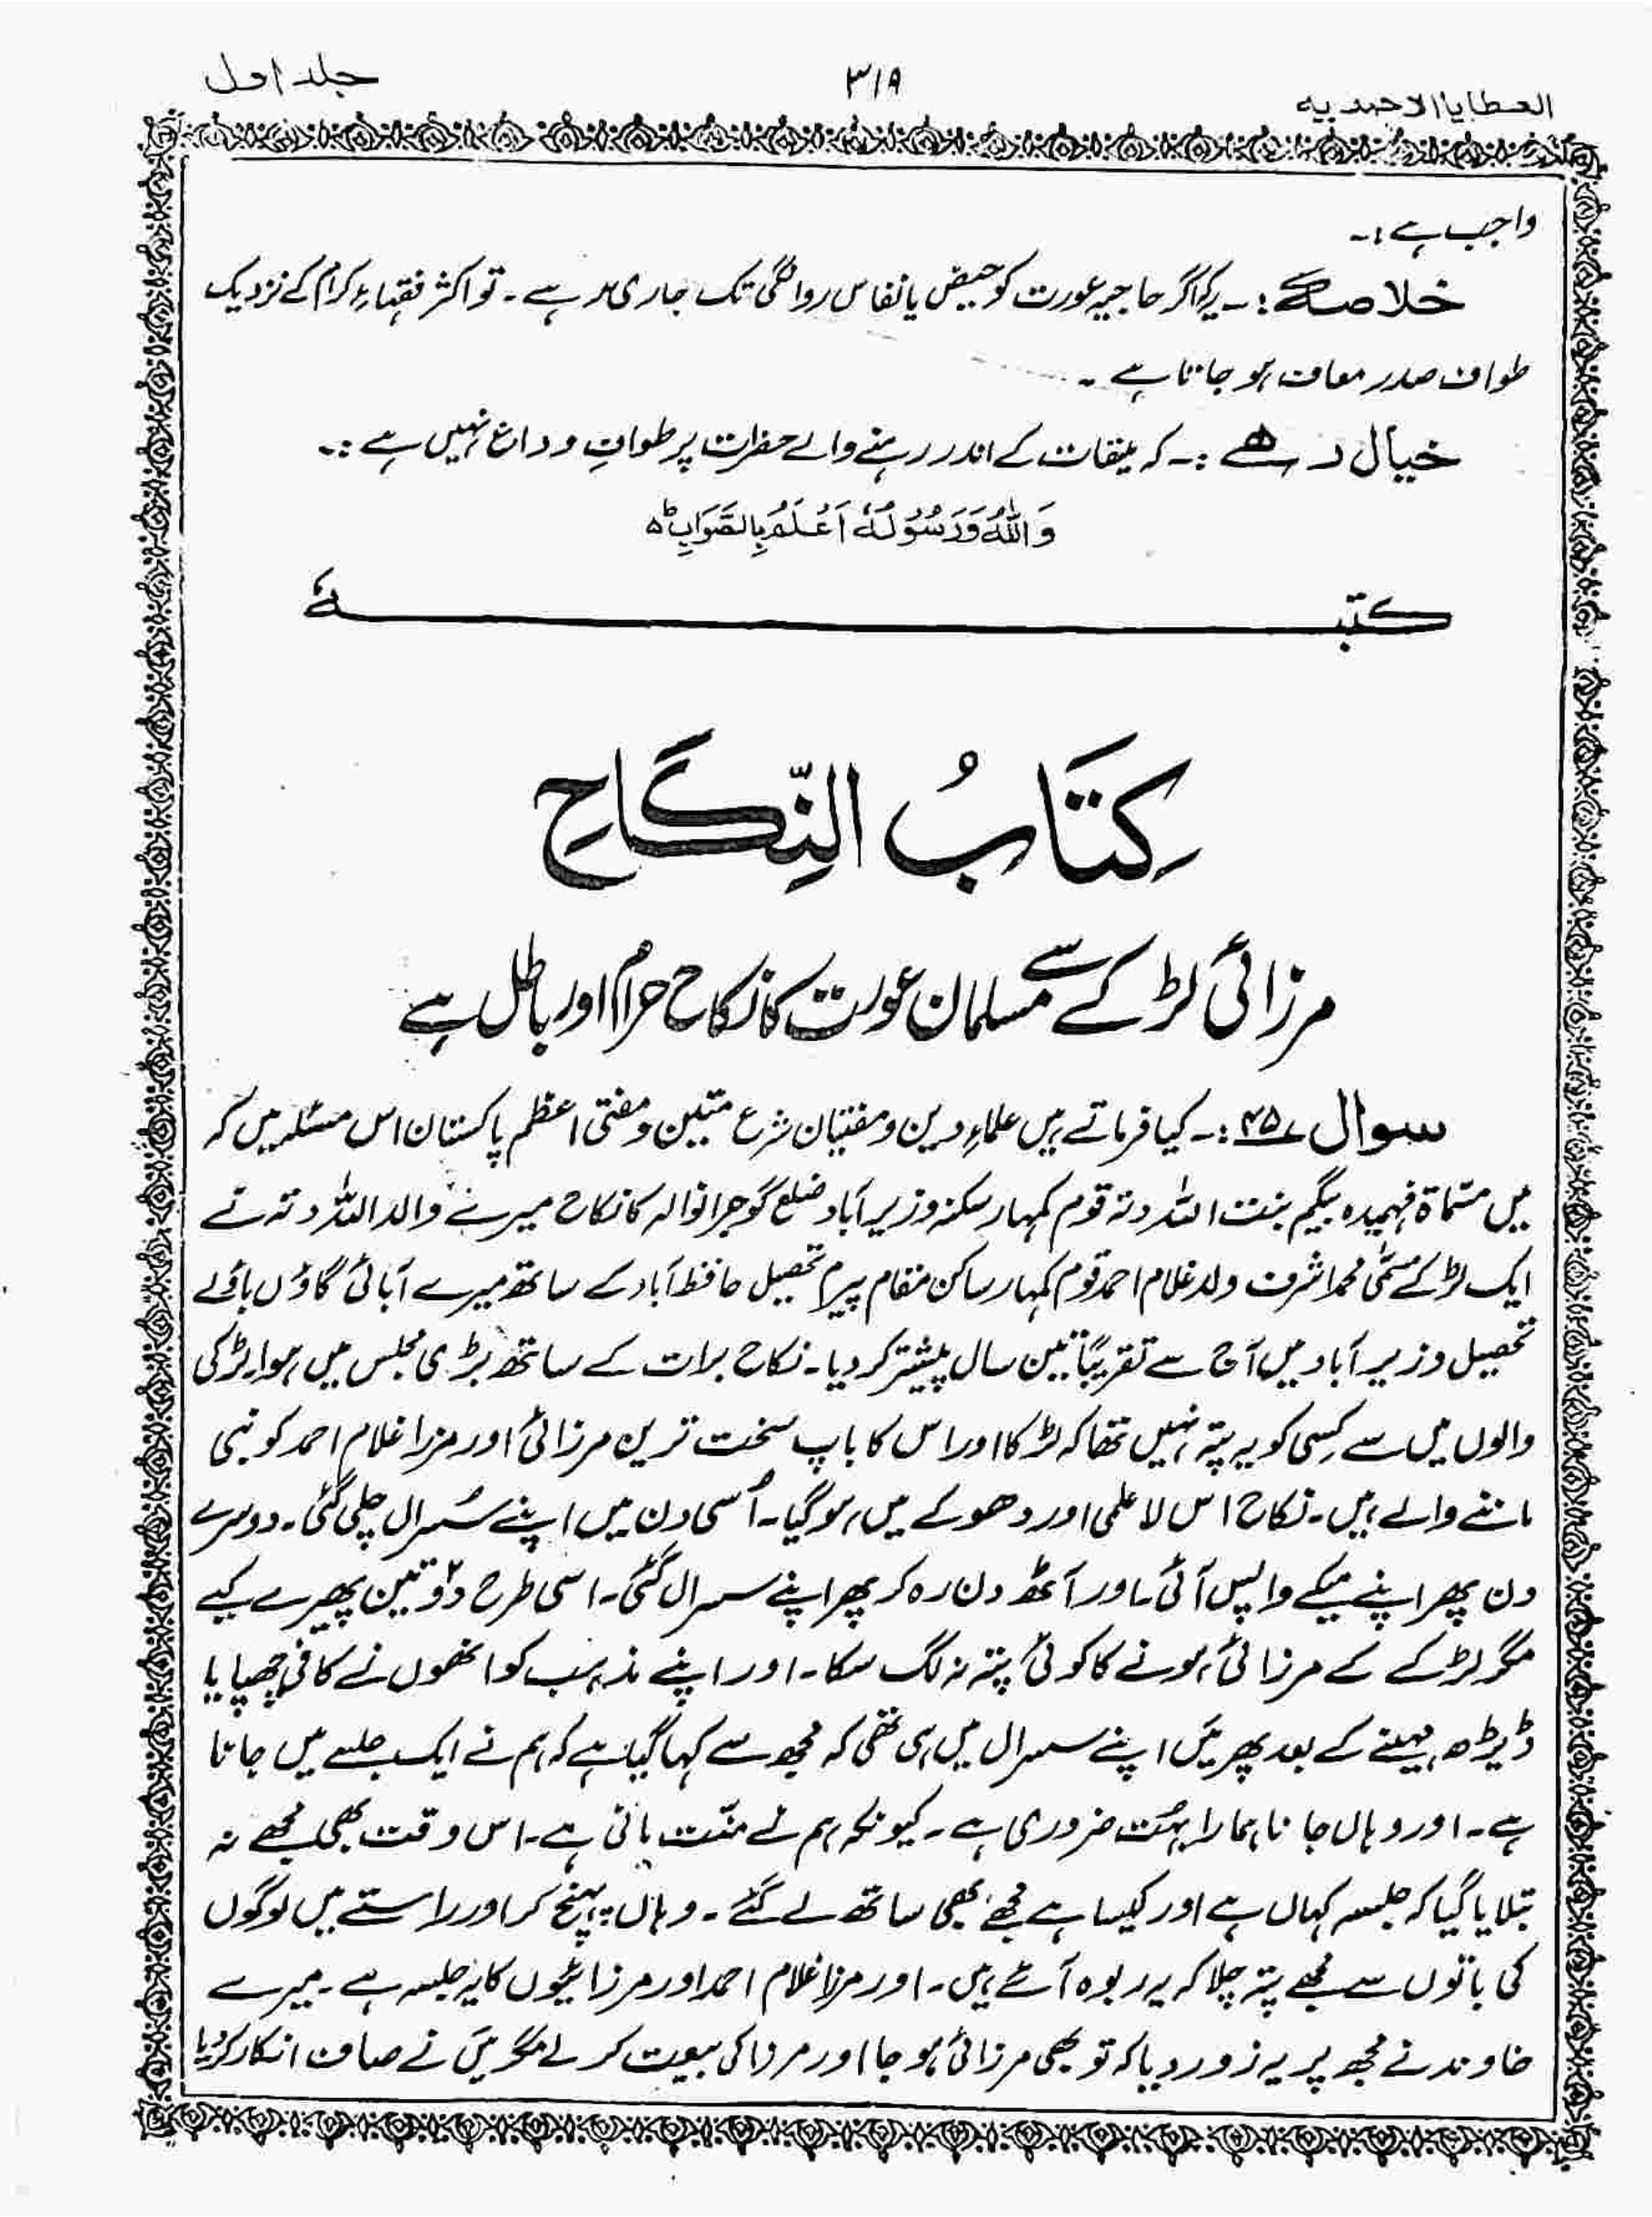 العطایا الاحمدیہ
۳۱۹
جلد اول
واجب ہے :۔
خلاصہ :۔ یہ کہ اگر حاجیہ عورت کو حیض یا نفاس روانگی تک جاری رہے ۔ تو اکثر فقہاءِ کرام کے نزدیک
طواف صدر معاف ہو جاتا ہے ۔
خیال رہے :۔ کہ میقات کے اندر رہنے والے حضرات پر طوافِ وداع نہیں ہے :۔
وَاللہُ وَرَسُوْلُہٗ اَعْلَمُ بِالصَّوَابِ ط ہ
کتبہٗ
کِتَابُ النِّکَاحِ
مرزائی لڑکے سے مسلمان عورت کا نکاح حرام اور باطل ہے
سوال ۴۵ :۔ کیا فرماتے ہیں علماءِ دین و مفتیان شرع متین و مفتی اعظم پاکستان اس مسئلہ میں کہ
میں مسّماۃ فہمیدہ بیگم بنت اللہ دتہ قوم کمہار سکنہ وزیر آباد ضلع گوجرانوالہ کا نکاح میرے والد اللہ دتہ نے
ایک لڑکے مسمّٰی محمد اشرف ولد غلام احمد قوم کمہار ساکن مقام پیرم تحصیل حافظ آباد کے ساتھ میرے آبائی گاؤں
تحصیل وزیر آباد میں آج سے تقریبًا تین سال پیشتر کر دیا ۔ نکاح برات کے ساتھ بڑی مجلس میں ہوا ۔ لڑکی
والوں میں سے کِسی کو یہ پتہ نہیں تھا کہ لڑکا اور اس کا باپ سخت ترین مرزائی اور مرزا غلام احمد کو نبی
ماننے والے ہیں ۔ نکاح اس لاعلمی اور دھوکے میں ہو گیا ۔ اُسی دن میں اپنے سُسرال چلی گئی ۔ دوسرے
دن پھر اپنے میکے واپس آئی ۔ اور آٹھ دن رہ کر پھر اپنے سسرال گئی ۔ اسی طرح دو تین پھیرے کیے
مگر لڑکے کے مرزائی ہونے کا کوئی پتہ نہ لگ سکا ۔ اور اپنے مذہب کو انھوں نے کافی چھپایا
ڈیڑھ مہینے کے بعد پھر میَں اپنے سسرال میں ہی تھی کہ مجھ سے کہا گیا ہے کہ ہم نے ایک جلسے میں جانا
ہے ۔ اور وہاں جانا ہمارا بہُت ضروری ہے ۔ کیونکہ ہم نے منّت مانی ہے ۔ اس وقت بھی مجھے نہ
بتلایا گیا کہ جلسہ کہاں ہے اور کیسا ہے مجھے بھی ساتھ لے گئے ۔ وہاں پہنچ کر اور راستے میں لوگوں
کی باتوں سے مجھے پتہ چلا کہ یہ ربوہ آئے ہیں ۔ اور مرزا غلام احمد اور مرزائیوں کا یہ جلسہ ہے ۔ میرے
خاوند نے مجھ پر یہ زور دیا کہ تو بھی مرزائی ہو جا اور مرزا کی بیعت کر لے مگر میَں نے صاف انکار کر دیا